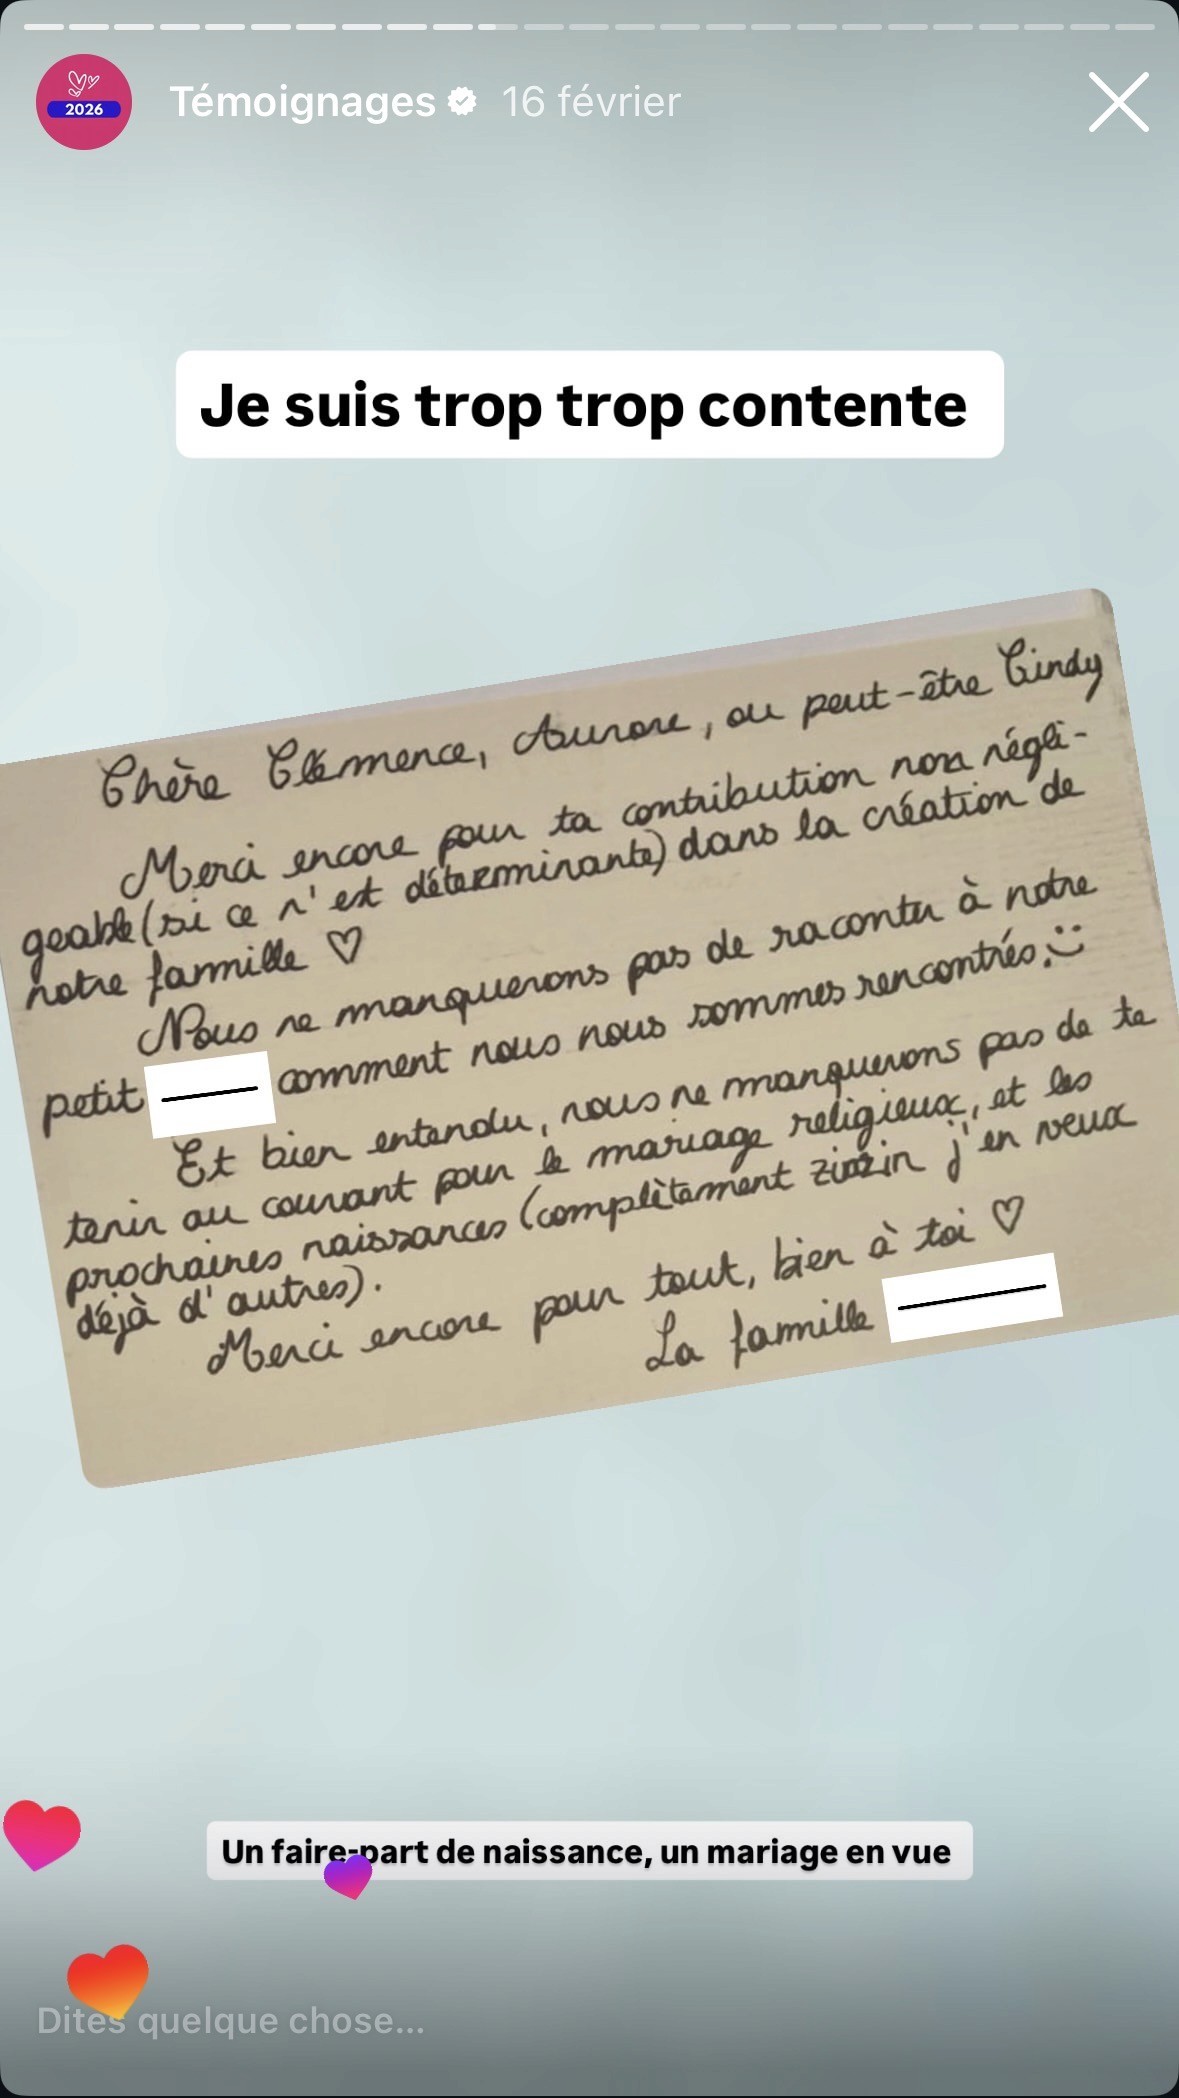 2026
Témoignages 16 février
Je suis trop trop contente
Chère Clémence, Aurore, ou peut-être Cindy
Merci encore pour ta contribution non négli-
geable (si ce n'est déterminante) dans la création de
notre famille ♡
Nous ne manquerons pas de raconter à notre
petit comment nous nous sommes rencontrés. :)
Et bien entendu, nous ne manquerons pas de te
tenir au courant pour le mariage religieux, et les
prochaines naissances (complètement zinzin j'en veux
déjà d'autres).
Merci encore pour tout, bien à toi ♡
La famille
Un faire-part de naissance, un mariage en vue
Dites quelque chose...